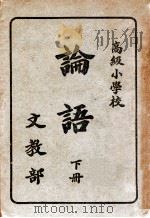 高級小學校
論語
下冊
文教部